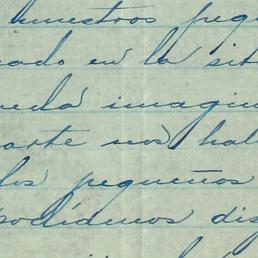 nuestros peque
ado en la sit
eda imagin
arte nos hal
los pequeños
podíamos dis